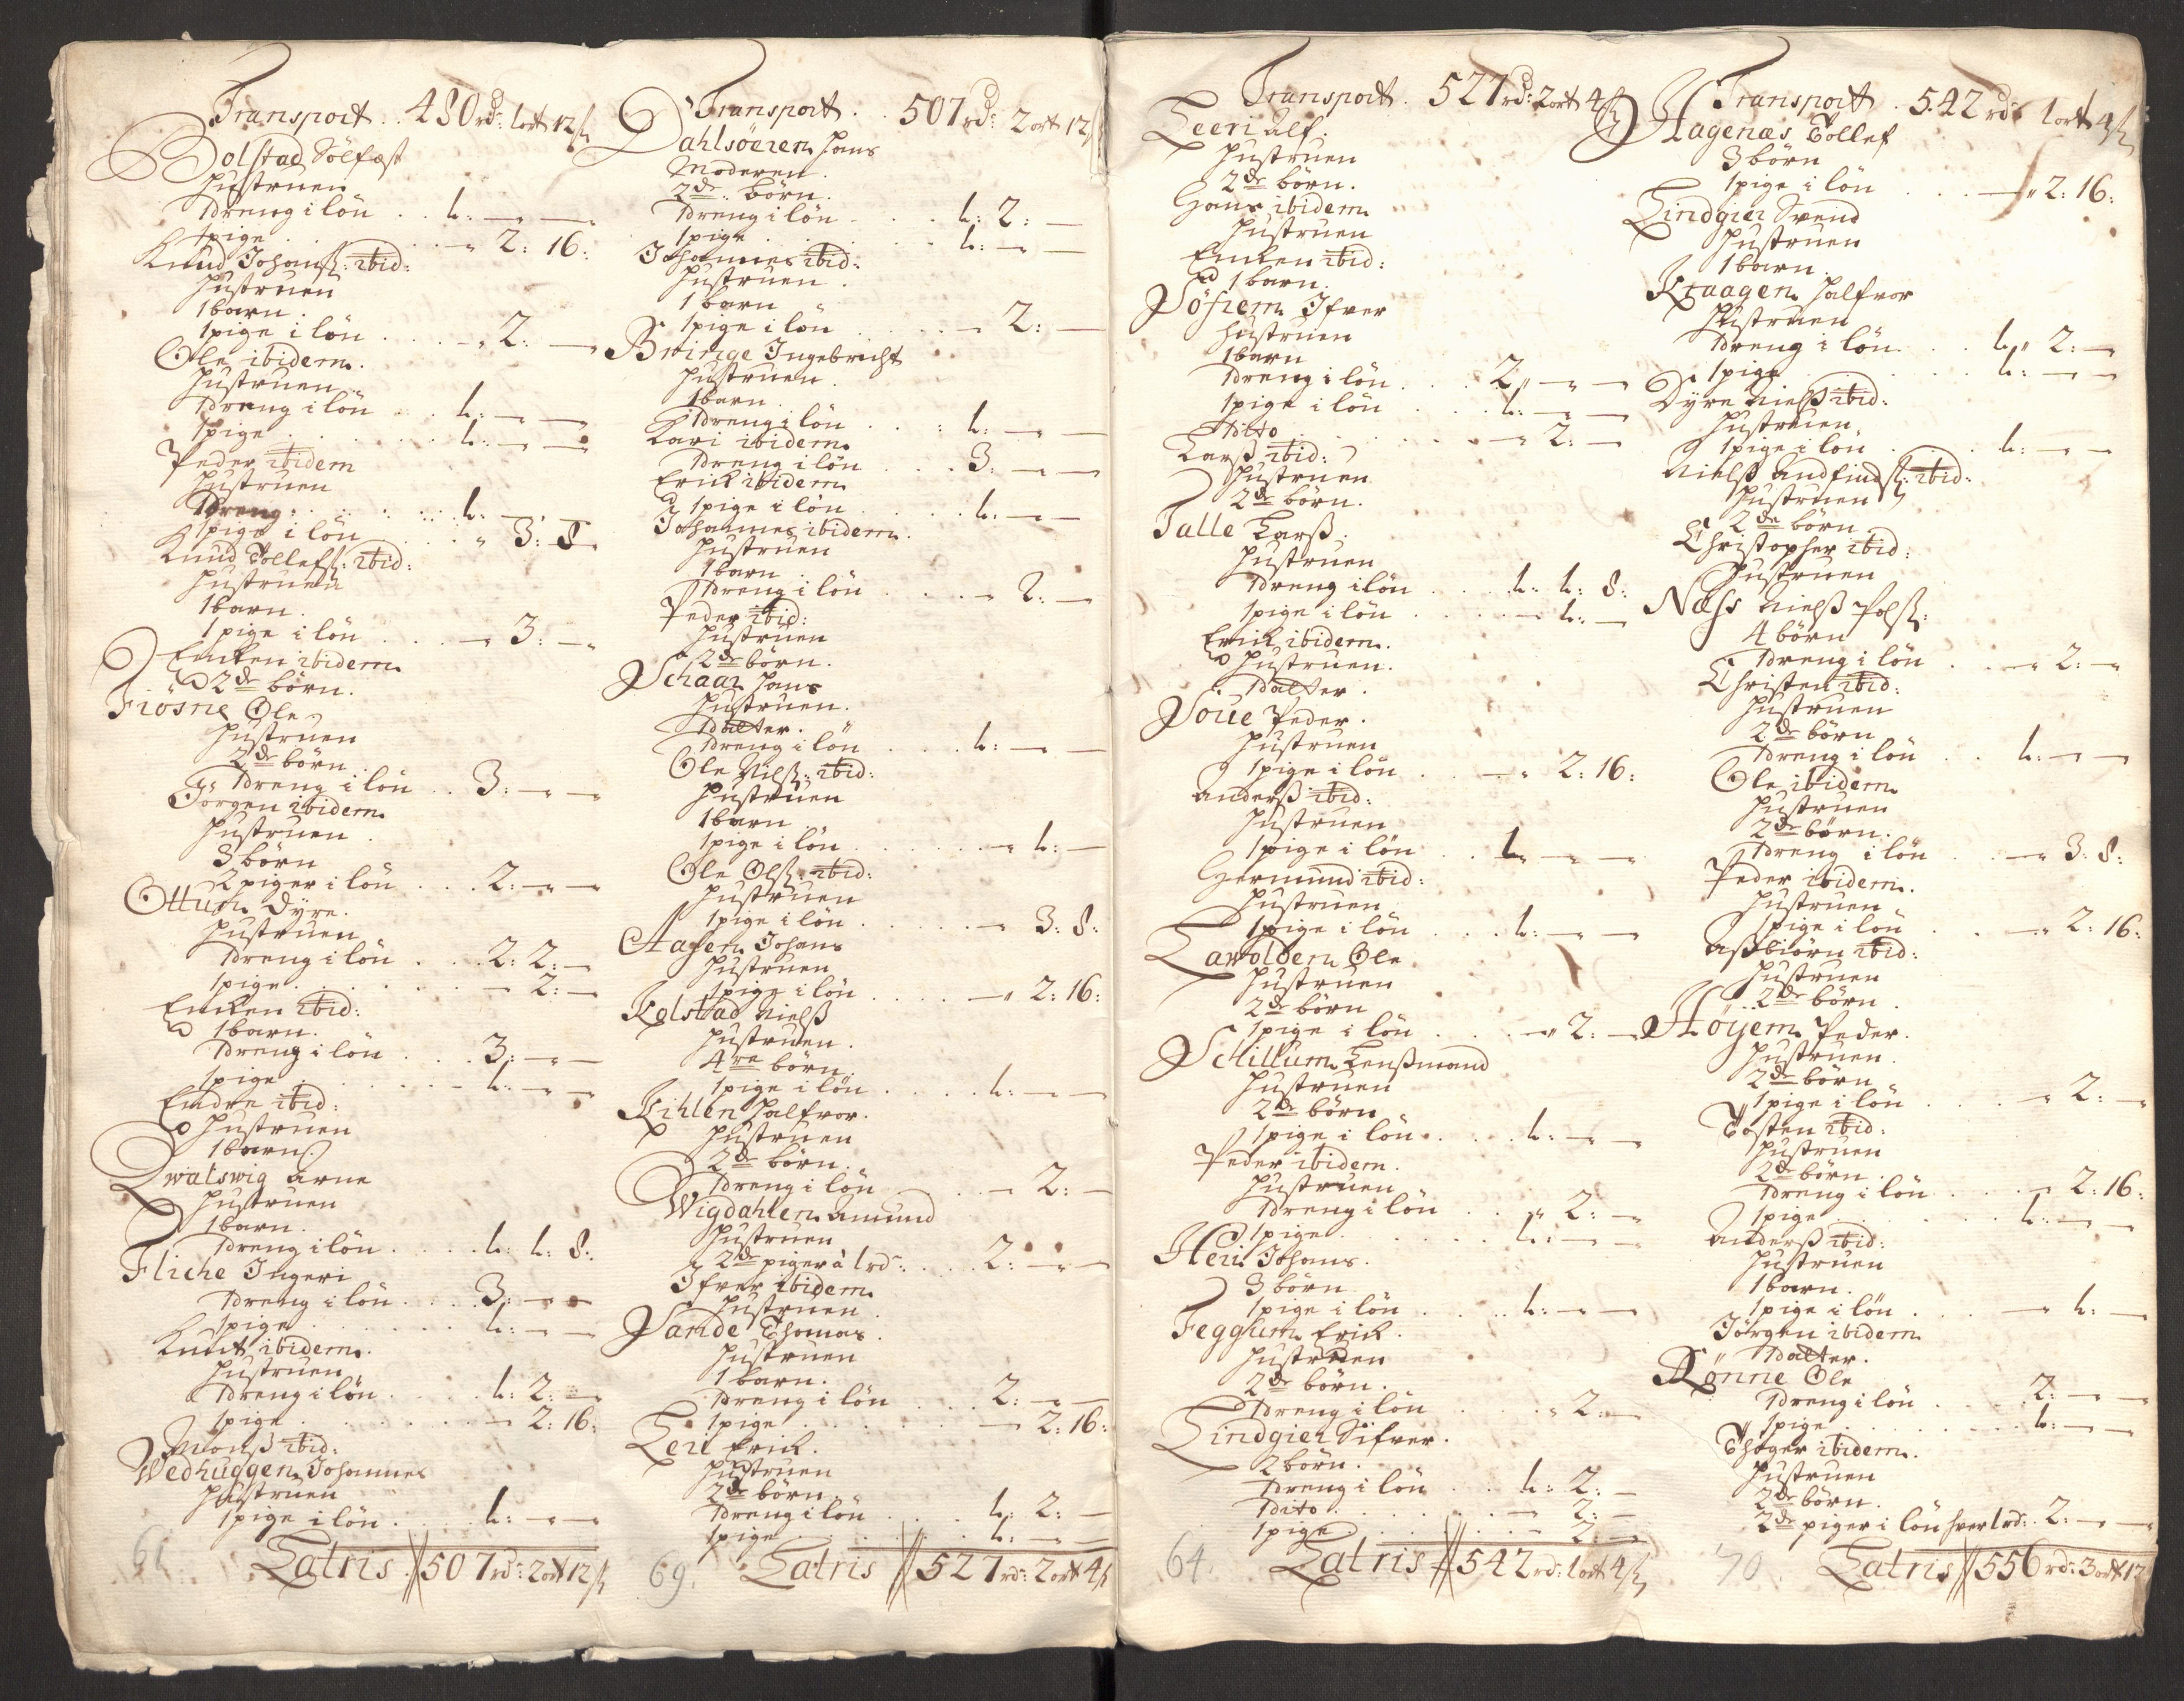 Transport . . 480 rd: 1 ort 12 ß
Bolstad Sölfæst
Hustruen
1 dreng i lön . . 1: — —
1 pige . . . — 2: 16:
Knud Johanß: ibid:
Hustruen
1 barn
1 pige i lön . . . — 2: —
Ole ibidem.
Hustruen
1 dreng i lön . . 1: — —
1 pige . . . . 1: — —
Peder ibidem
Hustruen
1 dreng . . . . 1: —
1 pige i lön . . 3: 8
Knud Tollefß: ibid:
Hustruen
1 barn.
1 pige i lön . . . — 3: —
Encken ibidem
2de börn.
Fiösne Ole
Hustruen
2de börn
1 dreng i lön . . 3: — —
Jörgen ibidem
Hustruen
3 börn
2 piger i lön . . . 2: — —
Ottum Dyre.
Hustruen
1 dreng i lön . . . 2: 2: —
1 pige . . . . — 2: —
Encken ibid:
1 barn.
1 dreng i lön . . . 3: — —
1 pige . . . . 1: — —
Endre ibid:
Hustruen
1 barn
Qwalswig Arne
Hustruen
1 barn.
1 dreng i lön . . . . 1: 1: 8:
Fliche Ingeri
1 dreng i lön . . . 3: — —
1 pige . . . . 1: — —
Knut ibidem.
Hustruen
1 dreng i lön . . . . 1: 2: —
1 pige . . . . — 2: 16:
Monß ibid:
Wedhuggen Johannes
Hustruen
1 pige i lön . . . . 1: — —
Latris 507 rd: 2 ort 12 ß
Transport . . 507 rd: 2 ort 12 ß
Dahlsöeren Hans
Moderen
2de börn.
1 dreng i lön . . . 1: 2: —
1 pige . . . . 1: — —
Johannes ibid:
Hustruen.
1 barn
1 pige i lön . . . . — 2: —
Brinige Ingebricht
Hustruen.
1 barn
1 dreng i lön . . : 1: — —
Kari ibidem
1 dreng i lön . . . 3: — —
Erick ibidem
1 pige i lön . . . . 1: — —
Johannes ibidem.
Hustruen
1 barn
1 dreng i lön . . . . — 2: —
Peder ibid:
Hustruen
2de börn.
Schaar Hans
Hustruen.
1 datter.
1 dreng i lön . . . . 1: — —
Ole Nilß: ibid:
Hustruen
1 barn
1 pige i lön . . . . . — 1: —
Ole Olß: ibid:
Hustruen
1 pige i lön . . . . . — 3: 8:
Aasen Johans
Hustruen
1 pige i lön . . . . — 2: 16:
Kolstad Nielß
Hustruen.
4re börn.
1 pige i lön . . . . 1: — —
Kihlen Halfvor.
Hustruen
2de börn.
1 dreng i lön . . . — 2: —
Wigdahlen Amund
Hustruen
2de piger à 1 rd: . . . 2: — —
Ifver ibidem
Hustruen
Sande Thomas.
Hustruen
1 barn.
1 dreng i lön . . . 2: — —
1 pige . . . . . — 2: 16:
Leri Erick.
Hustruen
2de börn.
1 dreng i lön . . . . 1: 2: —
1 pige . . . . . 1: — —
69. Latris 527 rd: 2 ort 4 ß
Transport . 527 rd: 2 ort 4 ß
Leeri Alf.
Hustruen
2de börn.
Hans ibidem
Hustruen
Encken ibid:
1 barn.
Söfrem Ifver
Hustruen
1 barn
1 dreng i lön . . . 2 — —
1 pige i lön . . . . 1: — —
dito . . . . . — 2: —
Larß ibid:
Hustruen
2de börn.
Talle Larß.
Hustruen
1 dreng i lön . . . 1: 1: 8:
1 pige i lön . . . . — 1: —
Erick ibidem.
Hustruen.
1 datter.
Soue Peder.
Hustruen
1 pige i lön . . — 2: 16:
Anderß ibid:
Hustruen
1 pige i lön . . 1 — —
Germund ibid:
Hustruen
1 pige i lön . . . 1: — —
Lawolden Ole
Hustruen
2de börn
1 pige i lön . . . . — 2: —
Schillum Lensmand
Hustruen
2de börn
1 pige i lön . . . 1: — —
Peder ibidem.
Hustruen
1 dreng i lön . . — 2: —
1 pige . . . . 1: — —
Heri Johans.
3 börn
1 pige i lön . . . . 1: — —
Feggum Erick.
Hustruen
2de börn.
1 dreng i lön . . . . 2: —
Lindgier Sifver.
2 börn.
1 dreng i lön . . 1: 2: —
1 dito . . . . — 2: —
1 pige . . . . — 2: —
64. Latris 542 rd: 1 ort 4 ß
Transport . 542 rd: 1 ort 4 ß
Hagenæs Tollef
3 börn
1 pige i lön . . — 2: 16:
Lindgier Svend
Hustruen
1 barn.
Kraagen Halfvor
Hustruen
1 dreng i lön . . 1: 2: —
1 pige . . . . 1: — —
Dyre Nielß ibid:
Hustruen.
1 pige i lön . . . . 1: — —
Nielß Andfindß: ibid:
Hustruen
2de börn
Christopher ibid:
Hustruen
Næss Nielß Polß:
4 börn
1 dreng i lön . . — 2: —
Christen ibid:
Hustruen
2de börn
1 dreng i lön . . 1: — —
Ole ibidem
Hustruen
2de börn.
1 dreng i lön . . . — 3: 8:
Peder ibidem.
Hustruen.
1 pige i lön . . . — 2: 16:
Aßbiörn ibid:
Hustruen
2de börn.
Höyem Peder.
Hustruen.
2de börn
1 pige i lön . . . — 2: —
Tosten ibid:
Hustruen
2de börn.
1 dreng i lön . . . — 2: 16:
1 pige . . . . 1: — —
Anderß ibid:
Hustruen
1 barn.
1 pige i lön . . . — 1: —
Jörgen ibidem
1 datter.
Rönne Ole
1 dreng i lön . . . . 2: — —
1 pige . . . . . 1: — —
Thoger ibidem.
Hustruen
2de börn.
2de piger i lön hver 1 rd: . 2: — —
70. Latris 556 rd: 3 ort 12